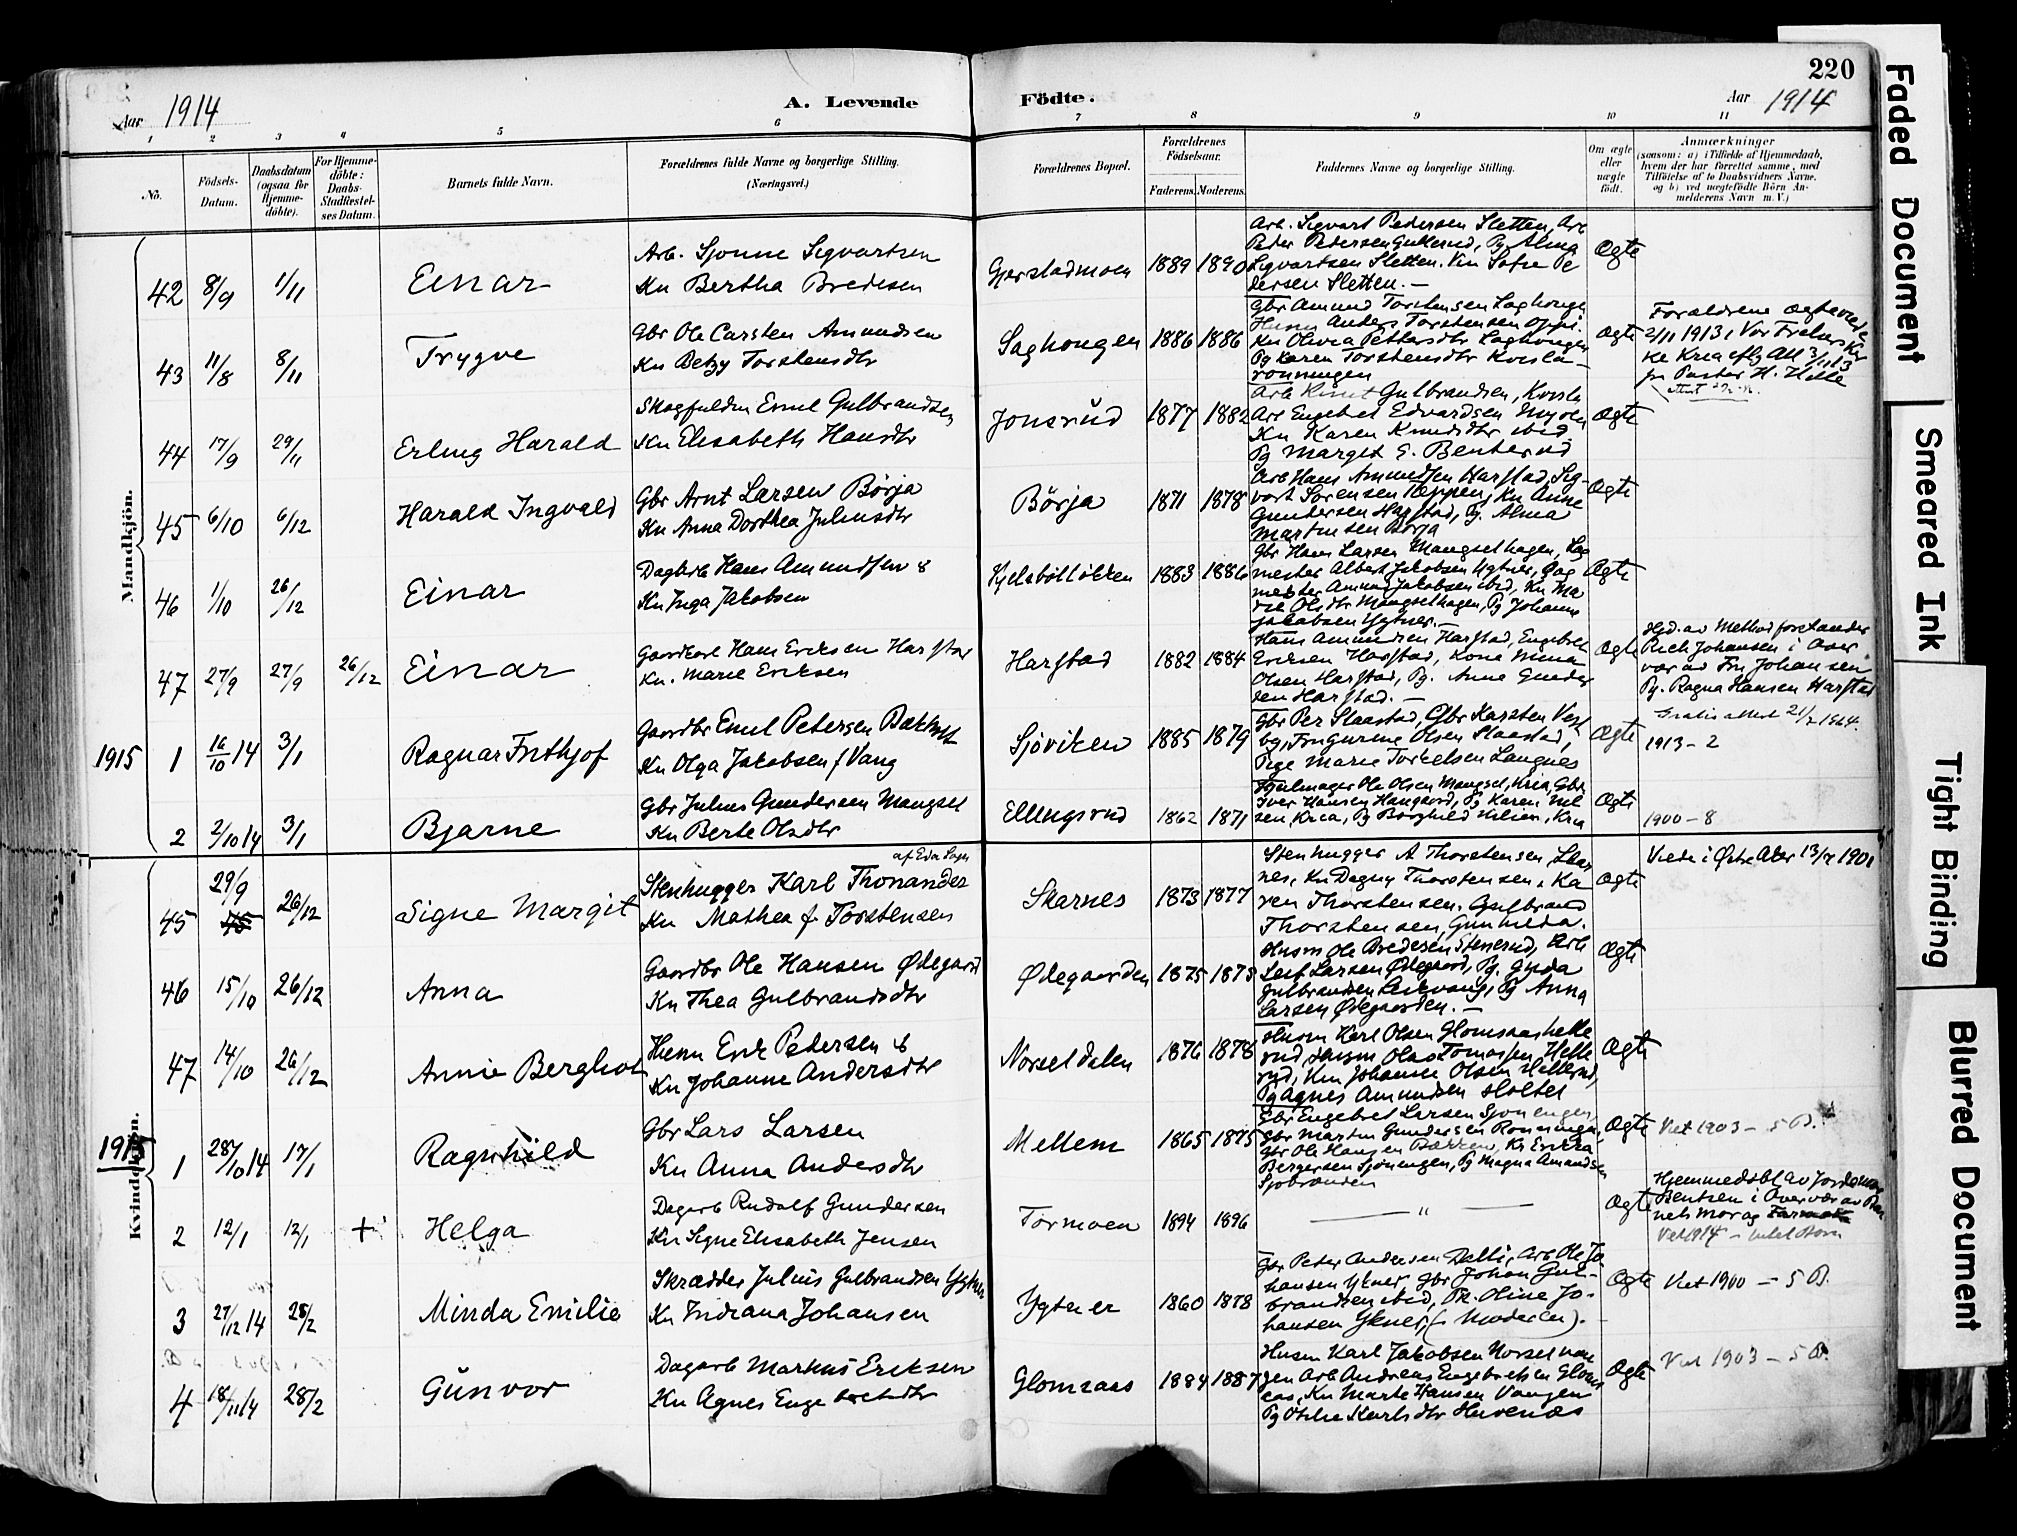 220
Aar 1914
A. Levende
Födte.
Aar 1914
1 2 3 4 5 6 7 8 9 10 11
No.
Födsels-
Datum.
Daabsdatum
(ogsaa for
Hjemme-
döbte).
For Hjemme-
döbte:
Daabs-
Stadfæstel-
ses Datum.
Barnets fulde Navn.
Forældrenes fulde Navne og borgerlige Stilling.
(Næringsvei.)
Forældrenes Bopæl.
Forældrenes
Födselsaar.
Faderens. Moderens.
Faddernes Navne og borgerlige Stilling.
Om ægte
eller
uægte
födt.
Anmærkninger
(saasom: a) i Tilfælde af Hjemmedaab,
hvem der har forrettet samme, med
Tilföielse af to Daabsvidners Navne,
og b) ved uægtefödte Börn An-
melderens Navn m. V.)
Mandkjön.
42 8/9 1/11
Einar
Arb. Sjonne Sigvartsen
Kn Bertha Bredesen
Gjerstadmoen
1889 1890
Arb. Sigvart Pedersen Sletten, Arb
Peder Pedersen Gukerud, Pg Alma
Sigvartsen Sletten. Kn Sofie Pe
dersen Sletten. —
Ægte
43 11/8 8/11
Trygve
Gbr Ole Carsten Amundsen
Kn Betzy Torstensdtr
Saghougen
1886 1886
Gbr Amund Torstensen Saghougen
Husm Anders Torstensen
Kn Olivia Pettersdtr Saghougen
Pg Karen Torstensdtr Korsla-
rønningen
Ægte
Forældrene ægteviede
2/11 1913 i Vor Frelsers Kir
ke Kria efter Att 3/11 13
fr Pastor H. Hille
44 17/9 29/11
Erling Harald
Skogfuldm Emil Gulbrandsen
Kn Elisabeth Hansdtr
Jonsrud
1877 1882
Arb Knut Gulbrandsen, Korsla
Arb Engebret Edvardsen Myren
Kn Karen Knudsdtr ibid
Pg Margit E. Benterud
Ægte
45 6/10 6/12
Harald Ingvald
Gbr Arnt Larsen Børja
Kn Anna Dorthea Juliusdtr
Børja
1871 1878
Arb Hans Amundsen Harstad, Sig-
vart Sørensen Tøppen, Kn Anne
Gundersen Harstad, Pg. Alma
Martinsen Børja
Ægte
46 1/10 26/12
Einar
Dagarb Hans Amundsen &
Kn Inga Jakobsen
Kjelsbølløkken
1883 1886
Gbr Hans Larsen Mangselhagen, Sag
mester Albert Jakobsen Ygtner, Sag
mester Amund Jakobsen ibid, Kn Ma
rie Olsdtr Mangselhagen, Pg Johanne
Jakobsen Ygtner. —
Ægte
47 27/9 27/9 26/12
Einar
Gaardkarl Hans Eriksen Harstad
Kn. Marie Eriksen
Harstad
1882 1884
Hans Amundsen Harstad, Engebret
Eriksen Harstad, Kone Mina
Olsen Harstad, Pg. Anne Gunder
sen Harstad. —
Ægte
Hjd. av Methodforstander
Rich Johansen i Over
vær av Fru Johansen
Pg. Ragna Hansen Harstad
Gratis attest 21/2 1964.
1915
1 16/10 14 3/1
Ragnar Frithjof
Gaardbr Emil Petersen Bækhest
Kn Olga Jakobsen f Vang
Sjøviken
1885 1879
Gbr Per Slaastad, Gbr Karsten Vest
by, Fru Gurine Olsen Slaastad,
Pige Marie Torkelsen Langnes
Ægte
1913 – 2
2 2/10 14 3/1
Bjarne
Gbr Julius Gundersen Mangset
Kn Berte Olsdtr
Ellingsrud
1862 1871
Hjulmager Ole Olsen Mangset, Kria, Gbr
Iver Hansen Haugaard, Pg Karen Nil
sen, Kria, Pg Borghild Nilsen, Kria
Ægte
1900 – 8
Kvindekjön.
45 29/9 26/12
Signe Margit
af Eda Sogn
Stenhugger Karl Thonander
Kn Mathea f. Torstensen
Skarnes
1873 1877
Stenhugger A Thorstensen Skar
nes, Kn Dagny Thorstensen, Ka
ren Thorstensen. Gulbrand
Thorstensen, Gunhilda.
Ægte
Viede i Østre Aker 13/7 1901
46 15/10 26/12
Anna
Gaardbr Ole Hansen Ødegaard
Kn Thea Gulbrandsdtr
Ødegaarden
1875 1873
Husm Ole Bredesen Stenerud, Arb
Leif Larsen Ødegaard, Pg. Gyda
Gulbrandsen Leikvang, Pg Anna
Larsen Ødegaarden. —
Ægte
47 14/10 26/12
Annie Berghot
Husm Erik Pedersen &
Kn Johanne Andersdtr
Norseldalen
1876 1878
Husm Karl Olsen Glomsaashelle
rud, Husm Olas Tomassen Helle
rud, Kn Johanne Olsen Hellerud,
Pg Agnes Amundsen Holtet
Ægte
1915
1 28/10 14 17/1
Ragnhild
Gbr Lars Larsen
Kn Anna Andersdtr
Mellem
1865 1875
Gbr Engebret Larsen Sjonengen
Gbr Martin Gundersen Rønningen,
Gbr Ole Hansen Bakken, Kn Erikka
Bergersen Sjønengen, Pg Magna Amandsen
Sjobraenden
Ægte
Viet 1903 – 5 B.
2 12/1 12/1 +
Helga
Dagarb Rudolf Gundersen
Kn Signe Elisabeth Jensen
Tormoen
1894 1896
— " —
Ægte
Hjemmedøbt av Jordemor
Bentsen i Overvær av Bar
nets Mor og
Viet 1914 – intet Barn
3 27/12 14 28/2
Minda Emilie
Skrædder Julius Gulbrandsen Ygtner
Kn Indiana Johansen
Ygtner
1860 1878
Gbr Peter Andersen Dalli, Arb Ole Jo
hansen Ygner, Gbr Johan Gul-
brandsen ibid, Pk. Oline Jo-
hansen Ygner, (: Moderen).
Ægte
Viet 1900 – 5 B.
4 18/11 14 28/2
Gunvor
Dagarb Markus Eriksen
Kn Agnes Engebretsdtr
Glomsaas
1884 1887
Husm Karl Jakobsen Norsel van
gen Arb Andreas Engebretsen Gloms
aas, Kn Marte Hansen Vangen
Pg Otilie Karlsdtr Huvenæs
Ægte
Viet 1903 – 5 B.
Faded Document
Smeared Ink
Tight Binding
Blurred Document